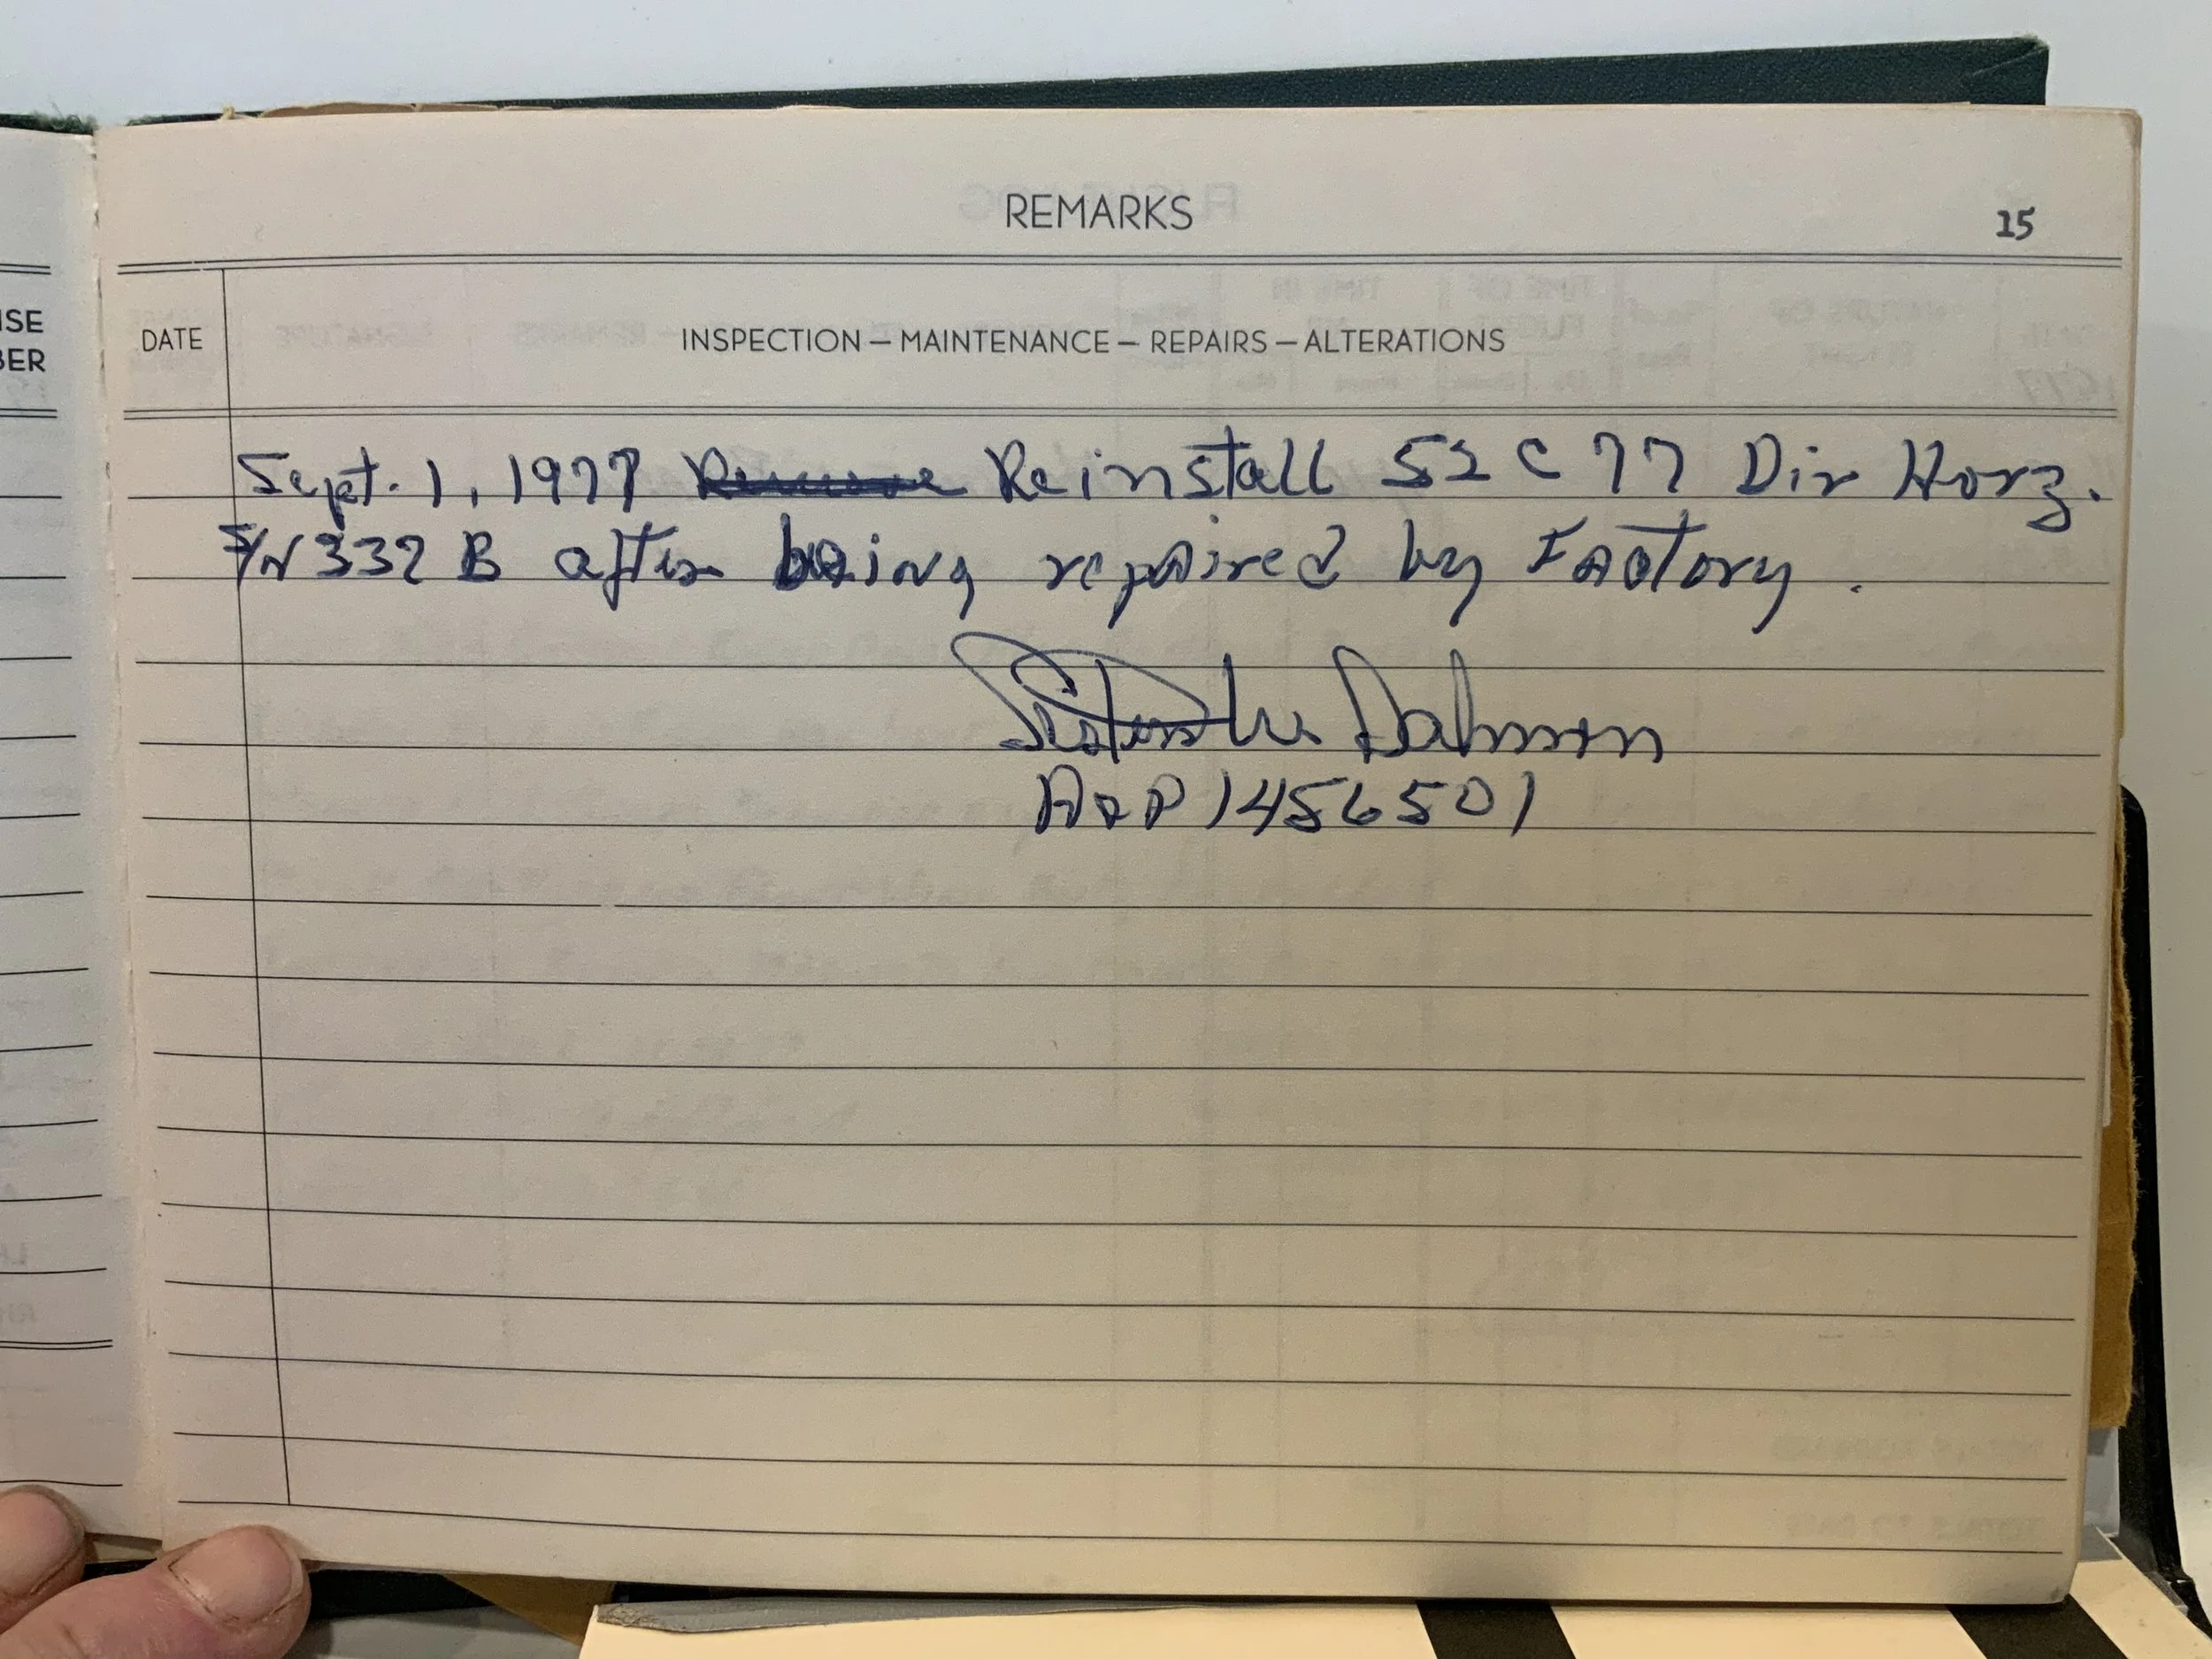 REMARKS
15
ISE
BER
DATE
INSPECTION — MAINTENANCE — REPAIRS — ALTERATIONS
Sept. 1, 1977 Remove Reinstall 52 C 77 Dir Horz.
S/N 332 B after being repaired by Factory.
Dahmen
A&P 1456501